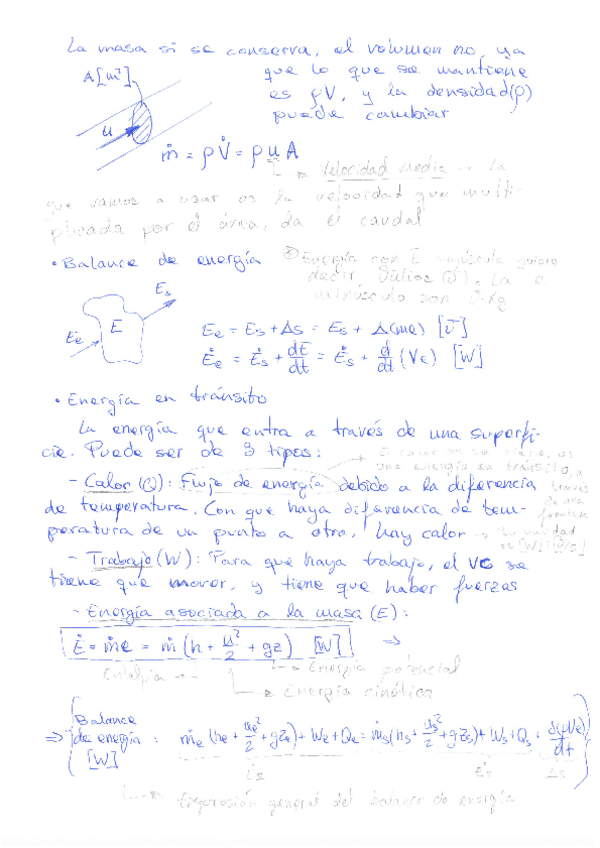 La masa si se conserva, el volumen no, ya
que lo que se mantiene
es ρV, y la densidad(ρ)
puede cambiar
A[m²]
u
ṁ = ρV̇ = ρ u A
Velocidad media → La
que vamos a usar es la velocidad que multi-
plicada por el área, da el caudal
• Balance de energía
* Energía con E mayúscula quiere
decir Julios (J). La e
minúscula son J/kg
Es
E
Ee
Ee = Es + Δs = Es + Δ(me) [J]
Ėe = Ės + dE/dt = Ės + d/dt (Ve) [W]
• Energía en tránsito
La energía que entra a través de una superfi-
cie. Puede ser de 3 tipos:
una energía en tránsito, a
través
de una
frontera
- Calor (Q): Flujo de energía debido a la diferencia
de temperatura. Con que haya diferencia de tem-
peratura de un punto a otro, hay calor
- Trabajo (W): Para que haya trabajo, el VC se
tiene que mover, y tiene que haber fuerzas
- Energía asociada a la masa (E):
Ė = ṁe = ṁ (h + u²/2 + gz) [W] ⇒
Entalpía
Energía potencial
Energía cinética
⇒ Balance de energía [W] : ṁe (he + ue²/2 + gze) + We + Qe = ṁs (hs + us²/2 + gzs) + Ws + Qs + d(ρVe)/dt
Ės
Δs
Expresión general del balance de energía